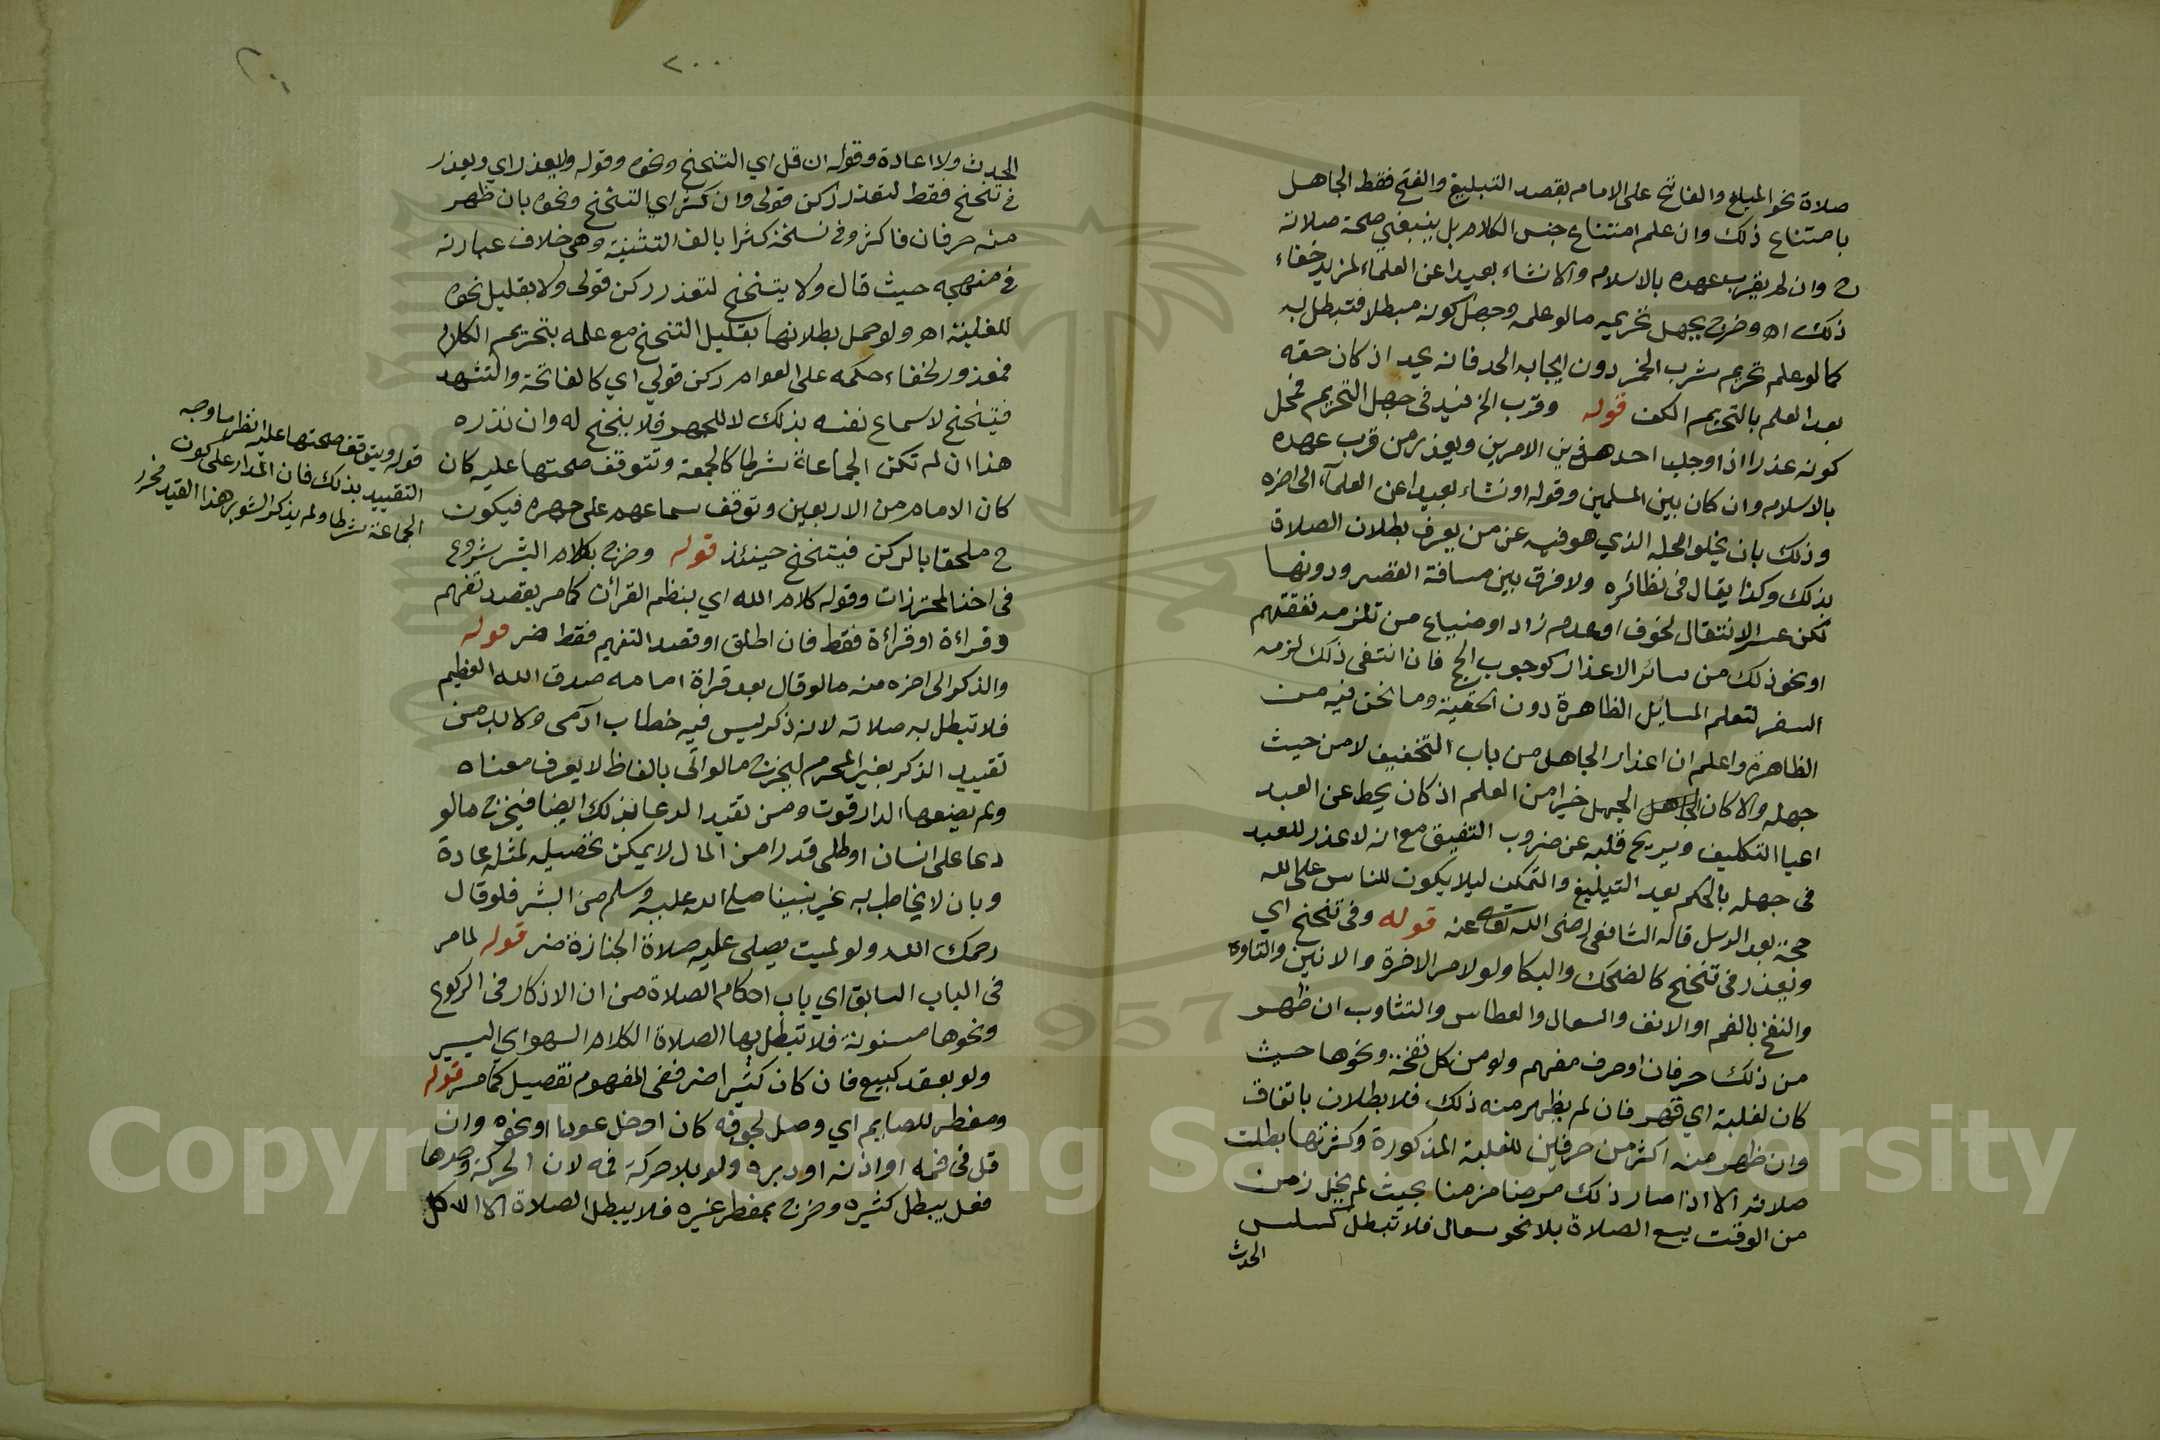 صلاة نحو المبلغ والفاتح على الامام بقصد التبليغ والفتح فقط الجاهل
بامتناع ذلك وان علم امتناع جنس الكلام بل ينبغي صحة صلاته
ح وان لم يقرب عهده بالاسلام ولا نشاء بعيدا عن العلماء لمزيد خفاء
ذلك اه وخرج بجهل تحريمه ما لو علمه وجهل كونه مبطلا فتبطل به
كما لو علم تحريم شرب الخمر دون ايجابه الحد فانه يحد اذ كان حقه
بعد العلم بالتحريم الكف قوله وقرب الخ قيد في جهل التحريم فمحل
كونه عذرا اذا وجد احد هذين الامرين ويعذر من قرب عهده
بالاسلام وان كان بين المسلمين وقوله او نشاء بعيدا عن العلمآء الى اخره
وذلك بان يخلو المحله الذي هو فيه عن من يعرف بطلان الصلاة
بذلك وكذا يقال في نظائره ولا فرق بين مسافة القصر ودونها
لكن عسر الانتقال لخوف او عدم زاد او ضياع من تلزمه نفقتهم
او نحو ذلك من سائر الاعذار كوجوب الحج فان انتفى ذلك لزمه
السفر لتعلم المسايل الظاهرة دون الخفية وما نحن فيه من
الظاهرة واعلم ان اعذار الجاهل من باب التخفيف لا من حيث
جهله والا كان الجهل خيرا من العلم اذ كان يحط عن العبد
اعبا التكليف ويريح قلبه عن ضروب التعنيف مع انه لا عذر للعبد
في جهله بالحكم بعد التبليغ والتمكن ليلا يكون للناس على الله
حجة بعد الرسل قاله الشافعي رضى الله تعالى عنه قوله وفي تنحنح اي
ويعذر في تنحنح كالضحك والبكا ولو لامر الاخرة والانين والتاوه
والنفخ بالفم او الانف والسعال والعطاس والتثاوب ان ظهر
من ذلك حرفان او حرف مفهم ولو من كل نفخة ونحوها حيث
كان لغلبة اي قهر فان لم يظهر منه ذلك فلا بطلان باتفاق
وان ظهر منه اكثر من حرفين للغلبة المذكورة وكثرتها بطلت
صلاته الا اذا صار ذلك مرضا مزمنا بحيث لم يخل زمن
من الوقت يسع الصلاة بلا نحو سعال فلا تبطل كسلس
الحدث
٢٠٠
٢٠١
الحدث ولا اعادة وقوله ان قل اي التنحنح ونحوه وقوله ولا يعذر اي ويعذر
في تنحنح فقط لتعذر ركن قولى وان كثر اي التنحنح ونحوه بان ظهر
منه حرفان فاكثر وفي نسخة كثرا بالف التثنية وهي خلاف عبارته
في منهجه حيث قال ولا بتنحنح لتعذر ركن قولى ولا بقليل نحوه
للغلبة اه ولو جهل بطلانها بقليل التنحنح مع علمه بتحريم الكلام
فمعذور لخفاء حكمه على العوام ركن قولي اي كالفاتحة والتشهد
فيتنحنح لاسماع نفسه بذلك لا للجهر فلا يتنحنح له وان نذره
هذا ان لم تكن الجماعة شرطا كالجمعة وتتوقف صحتها عليه كان
كان الامام من الاربعين وتوقف سماعهم على جهره فيكون
ح ملحقا بالركن فيتنحنح حينئذ قوله وخرج بكلام البشر شروع
في اخذ المحترزات وقوله كلام الله اي بنظم القرآن كما مر بقصد تفهم
وقراءة او قراءة فقط فان اطلق او قصد التفهيم فقط ضر قوله
والذكر الى اخره منه ما لو قال بعد قراة امامه صدق الله العظيم
فلا تبطل به صلاته لانه ذكر ليس فيه خطاب ادمى ولا بد من
تقييد الذكر بغير المحرم ليخرج ما لو اتى بالفاظ لا يعرف معناه
ولم يضعها العارفون ومن تقييد الدعا بذلك ايضا فيخرج ما لو
دعا على انسان او طلى قدرا من المال لا يمكن تحصيله لمثله عادة
وبان لا يخاطب به غير نبينا صلى الله عليه وسلم من البشر فلو قال
رحمك الله ولو لميت يصلى عليه صلاة الجنازة ضر قوله لما مر
في الباب السابق اي باب احكام الصلاة من ان الاذكار في الركوع
ونحوها مسنونة فلا تبطل بها الصلاة الكلام السهو اي اليسير
ولو بعقد كبيع فان كان كثيرا ضر ففى المفهوم تفصيل كما مر قوله
ومفطر للصايم اي وصل لجوفه كان ادخل عودا او نحوه وان
قل في فمه او اذنه او دبره ولو بلا حركة فمه لان الحركة وحدها
فعل يبطل كثيره وخرج بمفطر غيره فلا يبطل الصلاة الا الاكل
قوله ويتوقف صحتها عليه انظر ما وجه
التقييد بذلك فان المدار على كون
الجماعة شرطا ولم يذكر الشوبرى هذا القيد فحرر
Copyright © King Saud University
1957